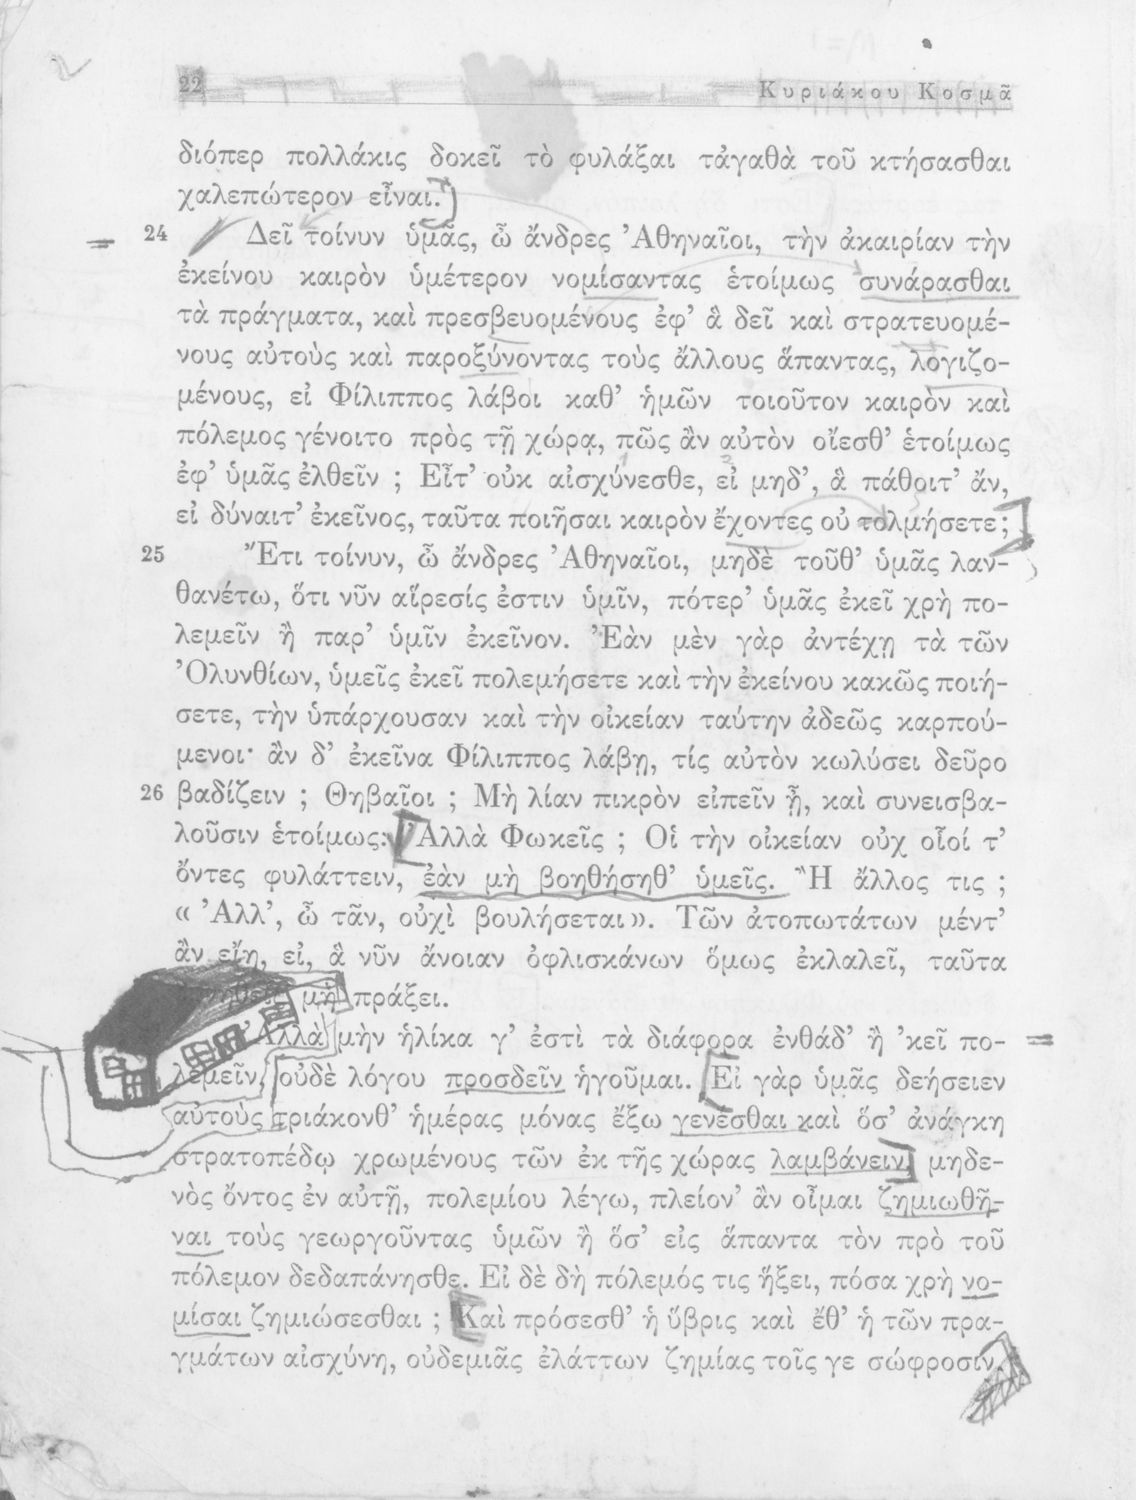 22 Κυριάκου Κοσμᾶ
διόπερ πολλάκις δοκεῖ τὸ φυλάξαι τἀγαθὰ τοῦ κτήσασθαι
χαλεπώτερον εἶναι.
24 Δεῖ τοίνυν ὑμᾶς, ὦ ἄνδρες Ἀθηναῖοι, τὴν ἀκαιρίαν τὴν
ἐκείνου καιρὸν ὑμέτερον νομίσαντας ἑτοίμως συνάρασθαι
τὰ πράγματα, καὶ πρεσβευομένους ἐφ’ ἃ δεῖ καὶ στρατευομέ-
νους αὐτοὺς καὶ παροξύνοντας τοὺς ἄλλους ἅπαντας, λογιζο-
μένους, εἰ Φίλιππος λάβοι καθ’ ἡμῶν τοιοῦτον καιρὸν καὶ
πόλεμος γένοιτο πρὸς τῇ χώρᾳ, πῶς ἂν αὐτὸν οἴεσθ’ ἑτοίμως
ἐφ’ ὑμᾶς ἐλθεῖν ; Εἶτ’ οὐκ αἰσχύνεσθε, εἰ μηδ’, ἃ πάθοιτ’ ἄν,
εἰ δύναιτ’ ἐκεῖνος, ταῦτα ποιῆσαι καιρὸν ἔχοντες οὐ τολμήσετε;
25 Ἔτι τοίνυν, ὦ ἄνδρες Ἀθηναῖοι, μηδὲ τοῦθ’ ὑμᾶς λαν-
θανέτω, ὅτι νῦν αἵρεσίς ἐστιν ὑμῖν, πότερ’ ὑμᾶς ἐκεῖ χρὴ πο-
λεμεῖν ἢ παρ’ ὑμῖν ἐκεῖνον. Ἐὰν μὲν γὰρ ἀντέχῃ τὰ τῶν
Ὀλυνθίων, ὑμεῖς ἐκεῖ πολεμήσετε καὶ τὴν ἐκείνου κακῶς ποιή-
σετε, τὴν ὑπάρχουσαν καὶ τὴν οἰκείαν ταύτην ἀδεῶς καρπού-
μενοι· ἂν δ’ ἐκεῖνα Φίλιππος λάβῃ, τίς αὐτὸν κωλύσει δεῦρο
26 βαδίζειν ; Θηβαῖοι ; Μὴ λίαν πικρὸν εἰπεῖν ᾖ, καὶ συνεισβα-
λοῦσιν ἑτοίμως. Ἀλλὰ Φωκεῖς ; Οἱ τὴν οἰκείαν οὐχ οἷοί τ’
ὄντες φυλάττειν, ἐὰν μὴ βοηθήσηθ’ ὑμεῖς. Ἢ ἄλλος τις ;
« Ἀλλ’, ὦ τᾶν, οὐχὶ βουλήσεται». Τῶν ἀτοπωτάτων μέντ’
ἂν εἴη, εἰ, ἃ νῦν ἄνοιαν ὀφλισκάνων ὅμως ἐκλαλεῖ, ταῦτα
μὴ πράξει.
Ἀλλὰ μὴν ἡλίκα γ’ ἐστὶ τὰ διάφορα ἐνθάδ’ ἢ ’κεῖ πο-
λεμεῖν, οὐδὲ λόγου προσδεῖν ἡγοῦμαι. Εἰ γὰρ ὑμᾶς δεήσειεν
αὐτοὺς τριάκονθ’ ἡμέρας μόνας ἔξω γενέσθαι καὶ ὅσ’ ἀνάγκη
στρατοπέδῳ χρωμένους τῶν ἐκ τῆς χώρας λαμβάνειν, μηδε-
νὸς ὄντος ἐν αὐτῇ, πολεμίου λέγω, πλείον’ ἂν οἶμαι ζημιωθῆ-
ναι τοὺς γεωργοῦντας ὑμῶν ἢ ὅσ’ εἰς ἅπαντα τὸν πρὸ τοῦ
πόλεμον δεδαπάνησθε. Εἰ δὲ δὴ πόλεμός τις ἥξει, πόσα χρὴ νο-
μίσαι ζημιώσεσθαι ; Καὶ πρόσεσθ’ ἡ ὕβρις καὶ ἔθ’ ἡ τῶν πρα-
γμάτων αἰσχύνη, οὐδεμιᾶς ἐλάττων ζημίας τοῖς γε σώφροσιν.